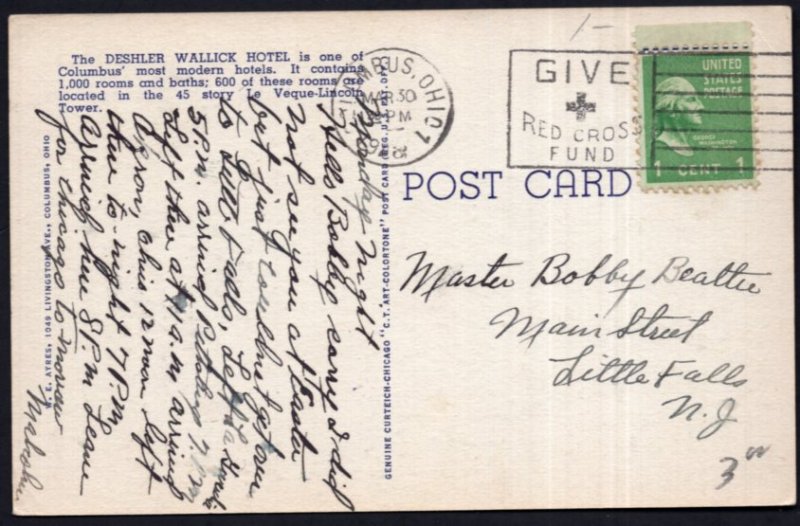 The DESHLER WALLICK HOTEL is one of
Columbus' most modern hotels. It contains
1,000 rooms and baths; 600 of these rooms are
located in the 45 story Le Veque-Lincoln
Tower.
W. E. AYRES, 1049 LIVINGSTON AVE., COLUMBUS, OHIO
GENUINE CURTEICH-CHICAGO "C.T. ART-COLORTONE" POST CARD (REG. U.S. PAT. OFF.)
COLUMBUS, OHIO 1
MAR 30
PM
GIVE
RED CROSS
FUND
1-
UNITED
STATES
POSTAGE
GEORGE
WASHINGTON
1 CENT 1
POST CARD
Monday Night
Hello Bobby sorry I did
not see you at Easter
but just couldn't get over
to Little Falls, Left
5 P.M. arrived 7 P.M
Left there at 11 a.m arrived
Akron, Ohio 12 noon left
there to-night 7 P.M
arrived here 8 P.M Leave
for Chicago to-morrow
Malcolm
Master Bobby Beattie
Main Street
Little Falls
N.J
3"